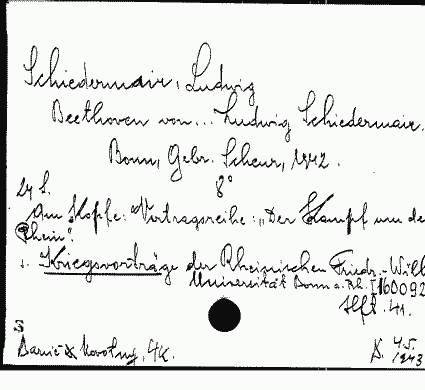 Schiedermair, Ludwig
Beethoven von... Ludwig Schiedermair.
Bonn, Gebr. Scheur, 1942.
8°
24 S.
Am Kopfe: Vortragsreihe: "Der Kampf um de
Rhein".
Kriegsvorträge der Rheinischen Friedr.-Wilh
Universität Bonn a. Rh. I 160092
Heft 41.
S
4K.
4.5.
1943